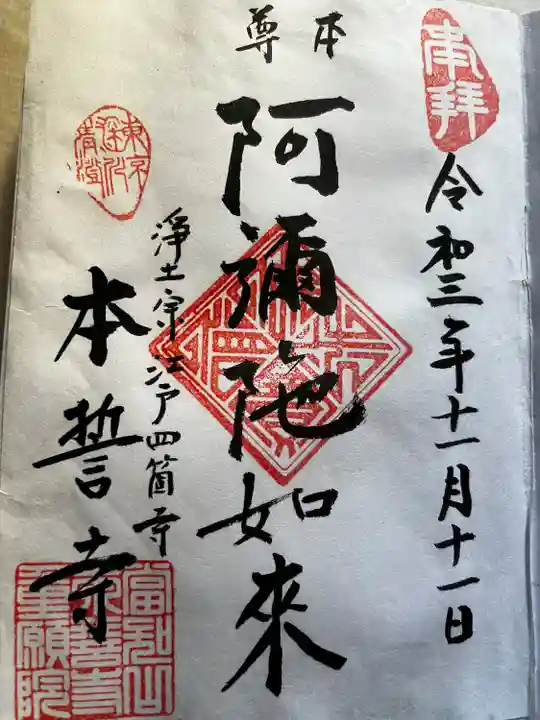 奉拝
令和三年十一月十一日
本尊
阿彌陀如來
浄土宗江戸四箇寺
本誓寺
東京
深川
清澄
當知山
本誓寺
重願院